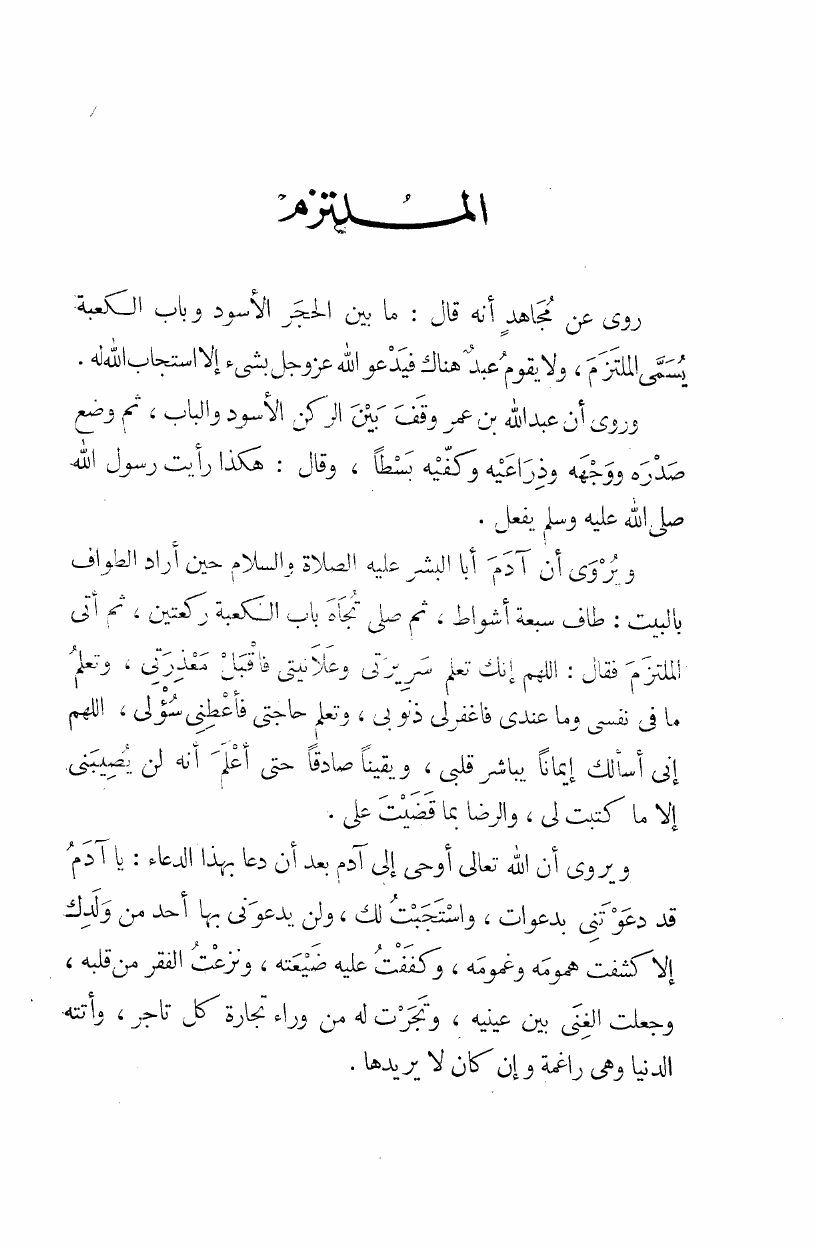 المُلتزم
روى عن مُجَاهِدٍ أنه قال : ما بين الحجَر الأسود وباب الكعبة
يُسَمَّى الملتزَمَ ، ولا يقومُ عبدٌ هناك فيَدْعو الله عز وجل بشىء إلا استجاب الله له .
وروى أن عبد الله بن عمر وقَفَ بَيْنَ الركن الأسود والباب ، ثم وضع
صَدْرَه ووَجْهَه وذِرَاعَيْه وكَفَّيْه بَسْطاً ، وقال : هكذا رأيت رسول الله
صلى الله عليه وسلم يفعل .
ويُرْوَى أن آدَمَ أبا البشر عليه الصلاة والسلام حين أراد الطواف
بالبيت : طاف سبعة أشواط ، ثم صلى تُجَاهَ باب الكعبة ركعتين ، ثم أتى
الملتزَمَ فقال : اللهم إنك تعلم سَرِيرَتى وعَلَانيتى فاقْبَلْ مَعْذِرَتِى ، وتعلمُ
ما فى نفسى وما عندى فاغفر لى ذنوبى ، وتعلم حاجتى فأعْطِنِى سُؤْلى ، اللهم
إنى أسألك إيماناً يباشر قلبى ، ويقيناً صادقاً حتى أعْلَمَ أنه لن يُصِيبَنى
إلا ما كتبت لى ، والرضا بما قَضَيْتَ على .
ويروى أن الله تعالى أوحى إلى آدم بعد أن دعا بهذا الدعاء : يا آدَمُ
قد دعَوْتَنِى بدعوات ، واسْتَجَبْتُ لك ، ولن يدعوَنى بها أحد من وَلَدِك
إلا كشفت همومَه وغمومَه ، وكفَفْتُ عليه ضَيْعَته ، ونزعْتُ الفقر من قلبه ،
وجعلت الغِنَى بين عينيه ، وتَجَرْت له من وراء تجارة كل تاجر ، وأتته
الدنيا وهى راغمة وإن كان لا يريدها .